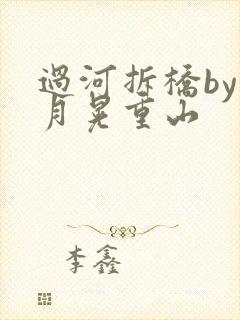 過河拆橋by
月晃重山
李鑫